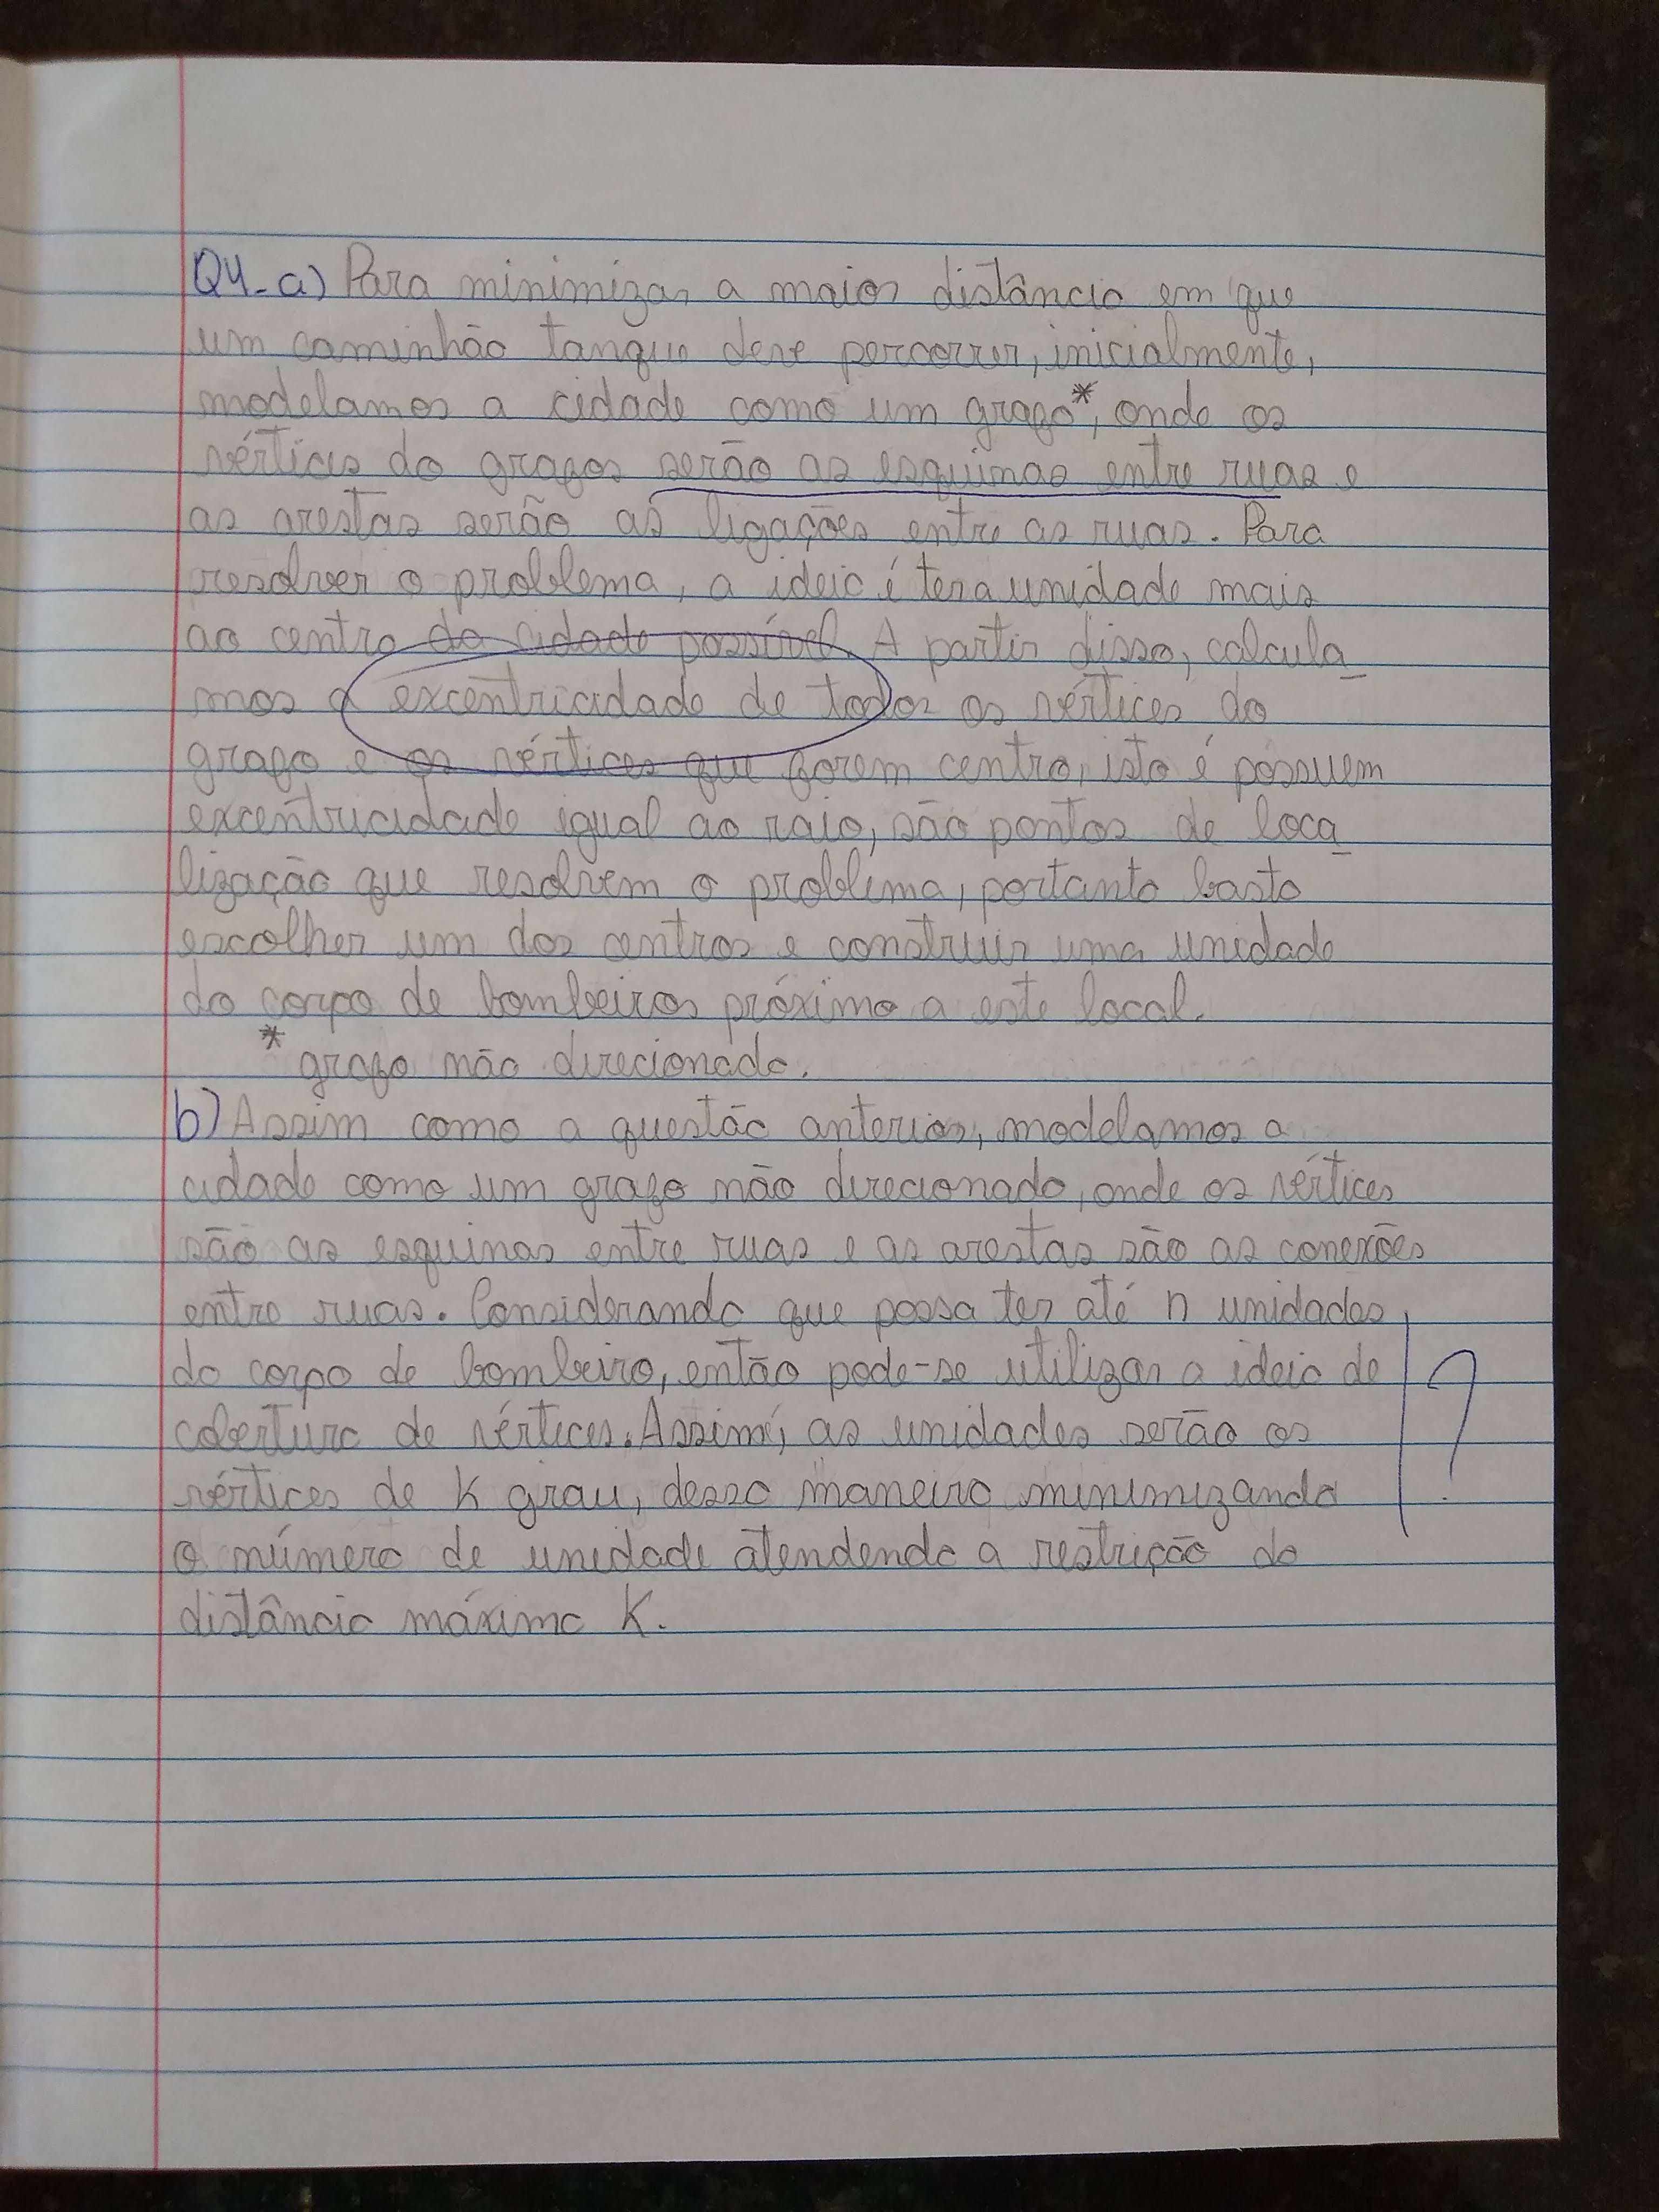 Q4-a) Para minimizar a maior distância em que
um caminhão tanque deve percorrer, inicialmente,
modelamos a cidade como um grafo*, onde os
vértices do grafos serão as esquinas entre ruas e
as arestas serão as ligações entre as ruas. Para
resolver o problema, a ideia é ter a unidade mais
ao centro da cidade possível. A partir disso, calcula_
mos a excentricidade de todos os vértices do
grafo e os vértices que forem centro, isto é possuem
excentricidade igual ao raio, são pontos de loca_
lização que resolvem o problema, portanto basta
escolher um dos centros e construir uma unidade
do corpo de bombeiros próximo a este local.
* grafo não direcionado.
b) Assim como a questão anterior, modelamos a
cidade como um grafo não direcionado, onde os vértices
são as esquinas entre ruas e as arestas são as conexões
entre ruas. Considerando que possa ter até n unidades
do corpo de bombeiro, então pode-se utilizar a ideia de
cobertura de vértices. Assim, as unidades serão os
vértices de K grau, dessa maneira minimizando
o número de unidade atendendo a restrição da
distância máxima K.
?